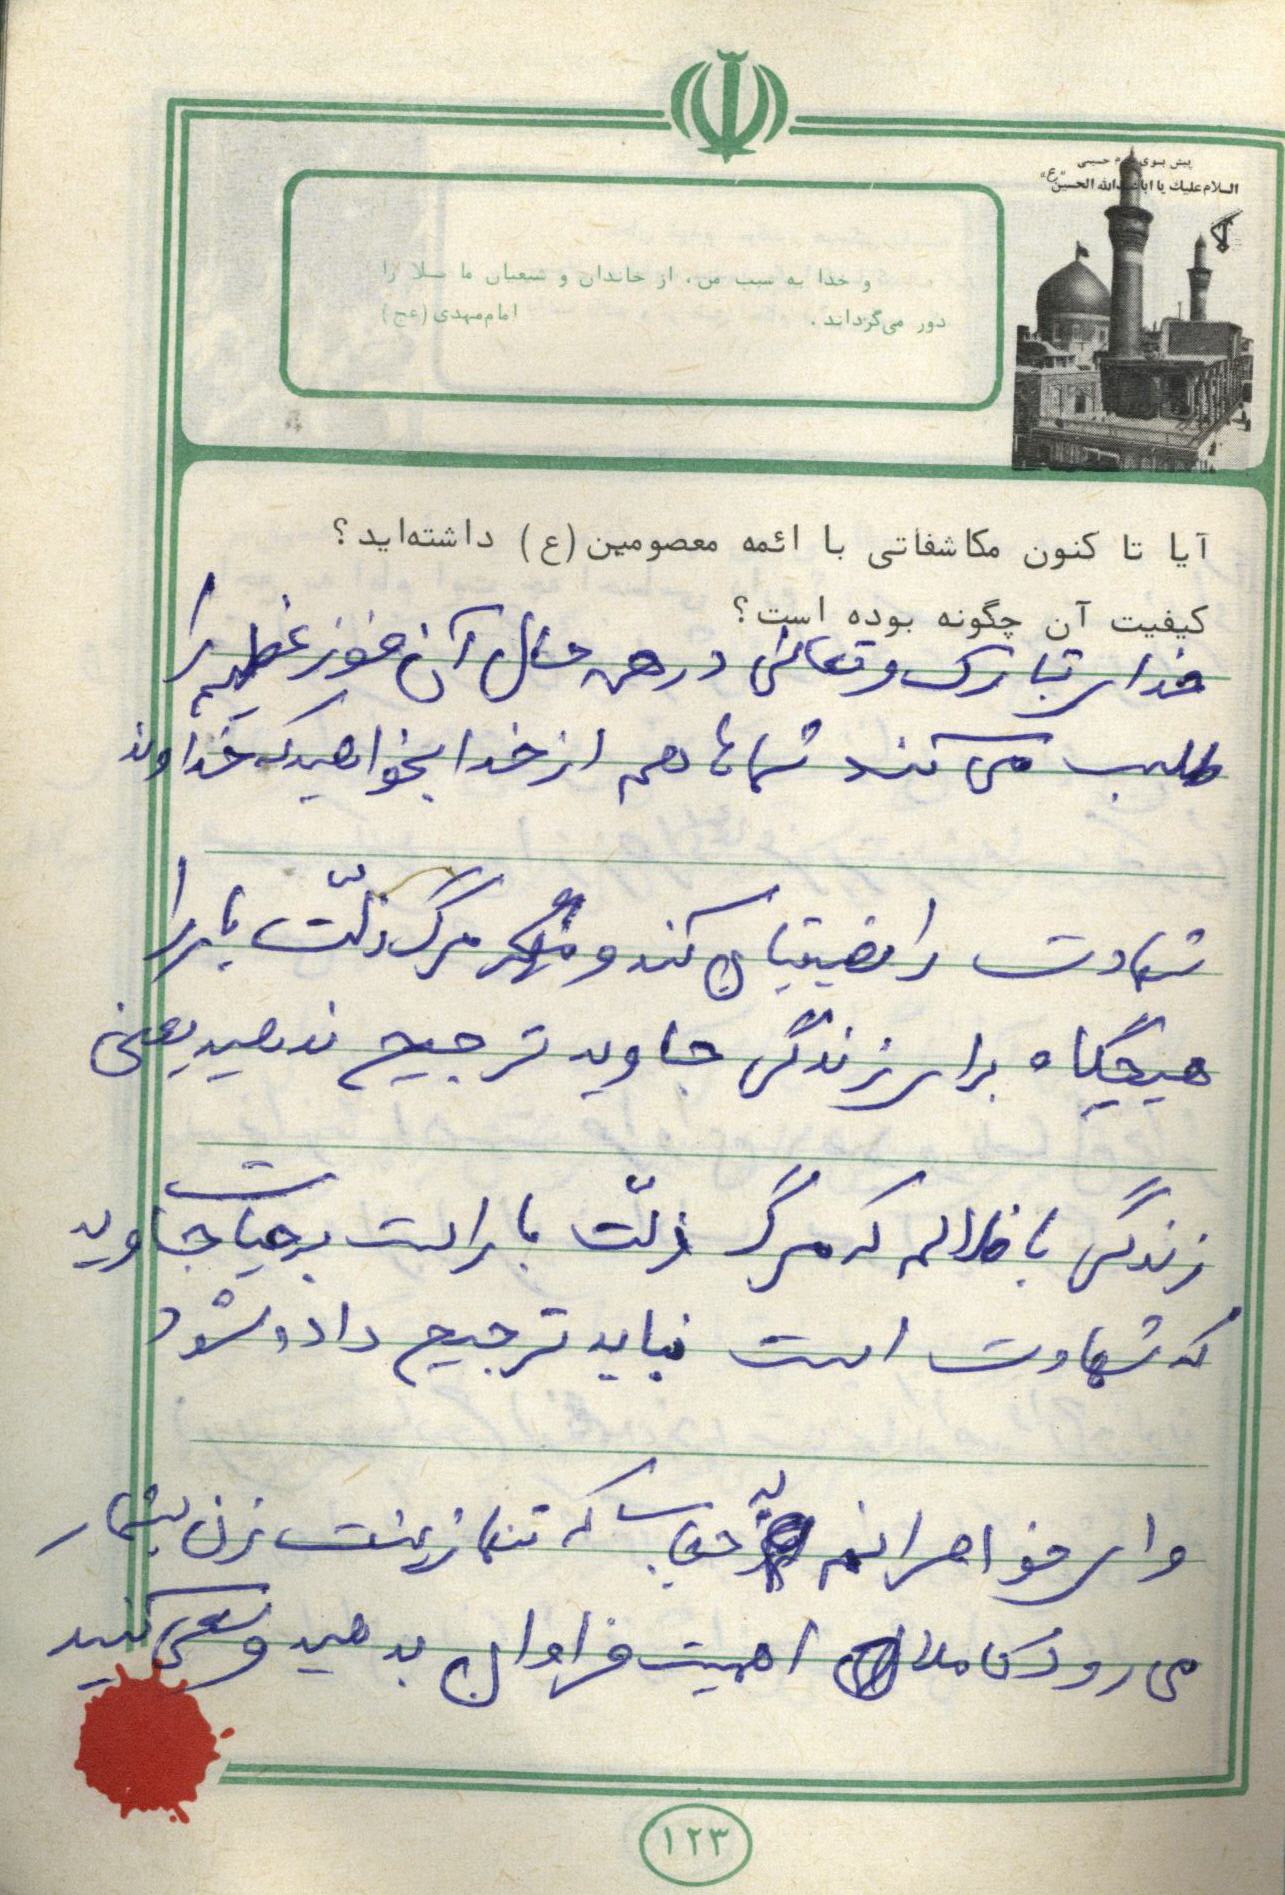 پیش بسوی حرم حسینی
السلام علیك یا اباعبدالله الحسین "ع"
و خدا به سبب من، از خاندان و شیعیان ما بلا را
دور می‌گرداند. امام‌مهدی(عج)
آیا تا کنون مکاشفاتی با ائمه معصومین(ع) داشته‌اید؟
کیفیت آن چگونه بوده است؟
خدای تبارک وتعالی در همه حال آن فوز عظیم را
طلب می کند شماها هم از خدا بخواهید که خداوند
شهادت را نصیبتان کند و مرگ ذلّت بار را
هیچگاه برای زندگی جاوید ترجیح ندهید یعنی
زندگی با ظالم که مرگ ذلّت بار است بر حیات جاوید
که شهادت است نباید ترجیح داده شود
وای خواهرانم به حجاب که تنها زینت زن بشمار
می رود کاملا اهمیت فراوان بدهید و سعی کنید
۱۲۳